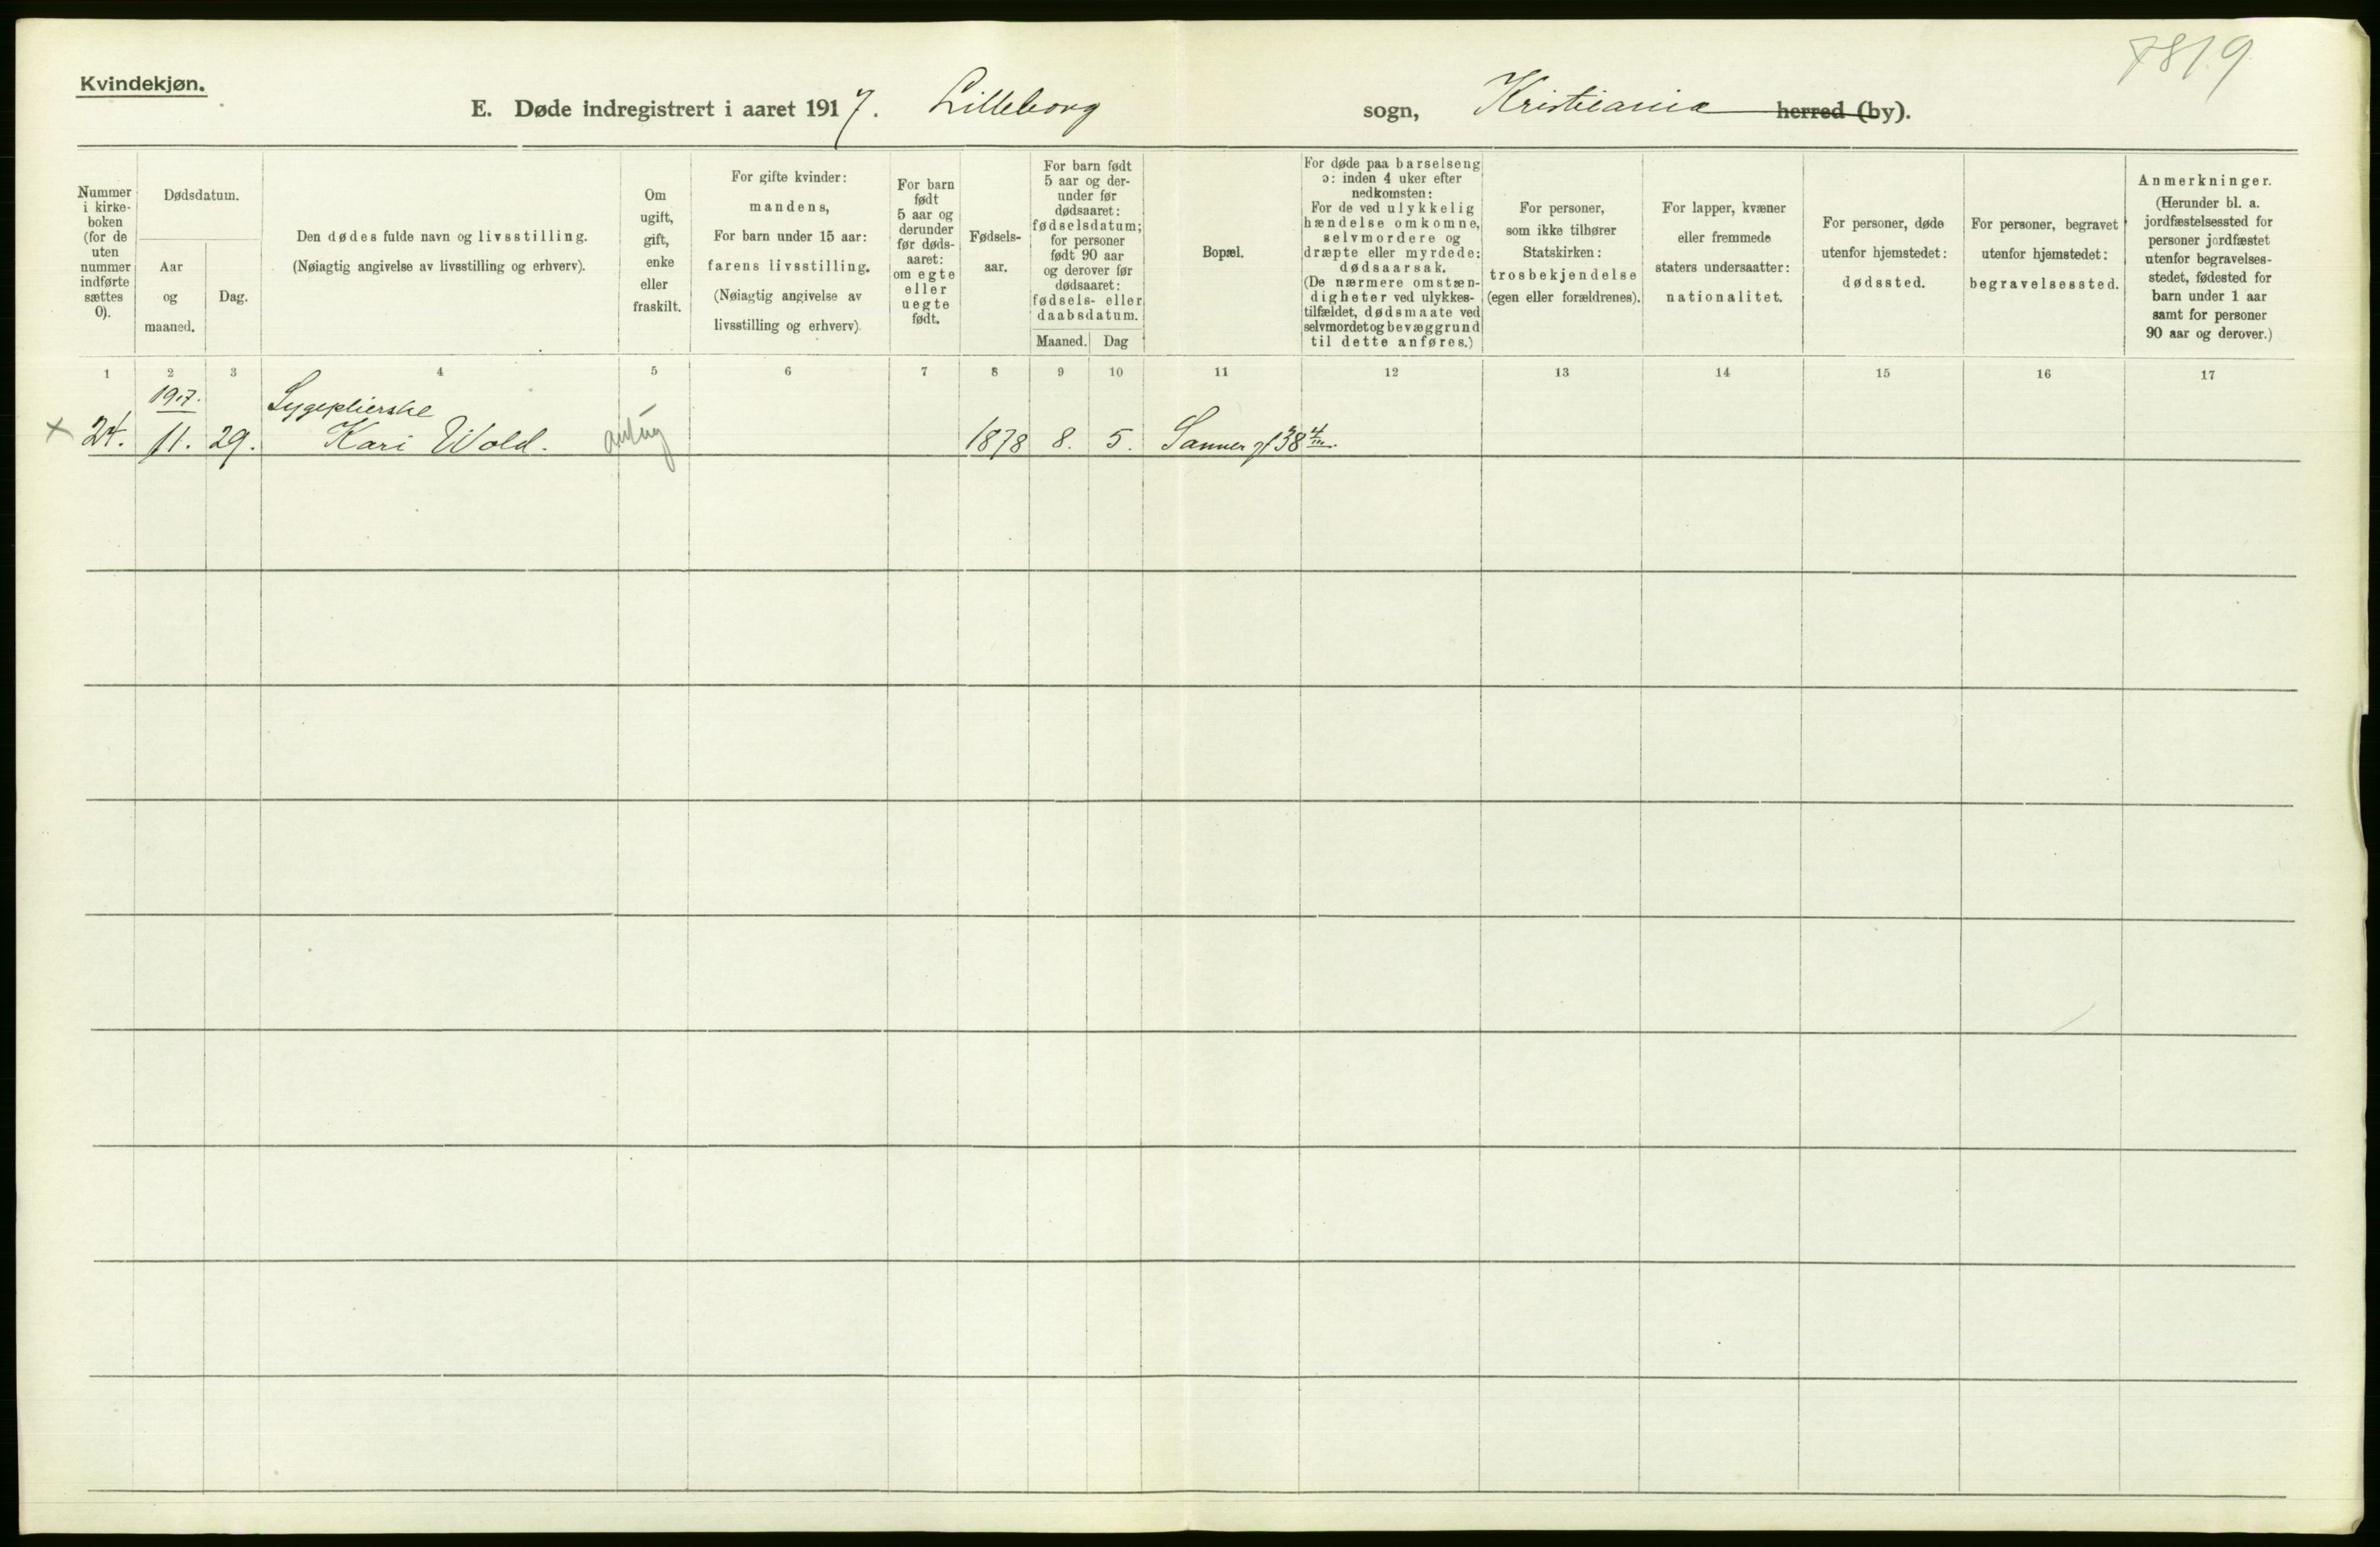 7819
Kvindekjøn.
E. Døde indregistrert i aaret 1917. Lilleborg sogn, Kristiania herred (by).
Nummer
i kirke-
boken
(for de
uten
nummer
indførte
sættes
0).
Dødsdatum.
Aar
og
maaned.
Dag.
Den dødes fulde navn og livsstilling.
(Nøiagtig angivelse av livsstilling og erhverv).
Om
ugift,
gift,
enke
eller
fraskilt.
For gifte kvinder:
mandens,
For barn under 15 aar:
farens livsstilling.
(Nøiagtig angivelse av
livsstilling og erhverv).
For barn
født
5 aar og
derunder
før døds-
aaret:
om egte
eller
uegte
født.
Fødsels-
aar.
For barn født
5 aar og der-
under før
dødsaaret:
fødselsdatum;
for personer
født 90 aar
og derover før
dødsaaret:
fødsels- eller
daabsdatum.
Maaned. Dag
Bopæl.
For døde paa barselseng
ɔ: inden 4 uker efter
nedkomsten:
For de ved ulykkelig
hændelse omkomne,
selvmordere og
dræpte eller myrdede:
dødsaarsak.
(De nærmere omstæn-
digheter ved ulykkes-
tilfældet, dødsmaate ved
selvmordet og bevæggrund
til dette anføres.)
For personer,
som ikke tilhører
Statskirken:
trosbekjendelse
(egen eller forældrenes).
For lapper, kvæner
eller fremmede
staters undersaatter:
nationalitet.
For personer, døde
utenfor hjemstedet:
dødssted.
For personer, begravet
utenfor hjemstedet:
begravelsessted.
Anmerkninger.
(Herunder bl. a.
jordfæstelsessted for
personer jordfæstet
utenfor begravelses-
stedet, fødested for
barn under 1 aar
samt for personer
90 aar og derover.)
1 2 3 4 5 6 7 8 9 10 11 12 13 14 15 16 17
1917. Sygepleierske
x 24. 11. 29. Kari Wold. 1878 8. 5. Sanner gt 38